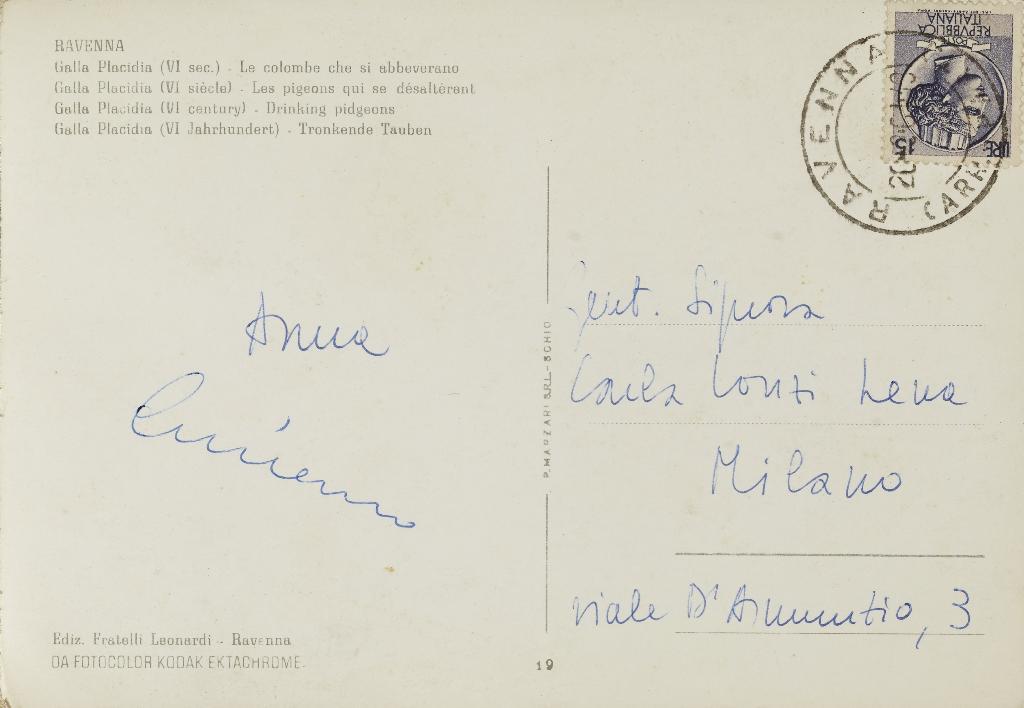 RAVENNA
Galla Placidia (VI sec.) - Le colombe che si abbeverano
Galla Placidia (VI siècle) - Les pigeons qui se désaltèrent
Galla Placidia (VI century) - Drinking pidgeons
Galla Placidia (VI Jahrhundert) - Tronkende Tauben
REPVBBLICA
ITALIANA
POSTE
LIRE 15
RAVENNA
Anna
Gent. Signora
Carla Lonzi Lena
Milano
viale D'Annunzio, 3
P. MARZARI S.R.L. - SCHIO
Ediz. Fratelli Leonardi - Ravenna
DA FOTOCOLOR KODAK EKTACHROME.
19